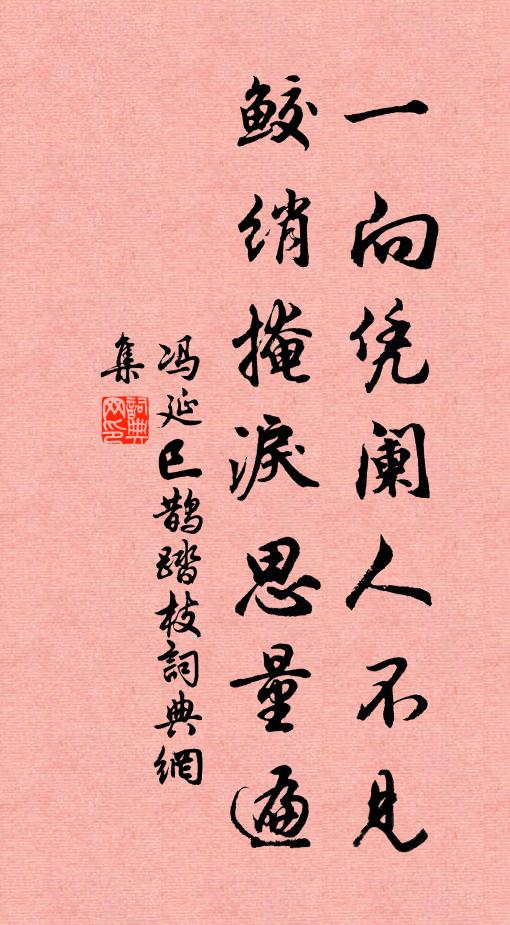 一向凭阑人不见
鲛绡掩淚思量遍
冯延巳鹊踏枝詞典網
集
詞典网印